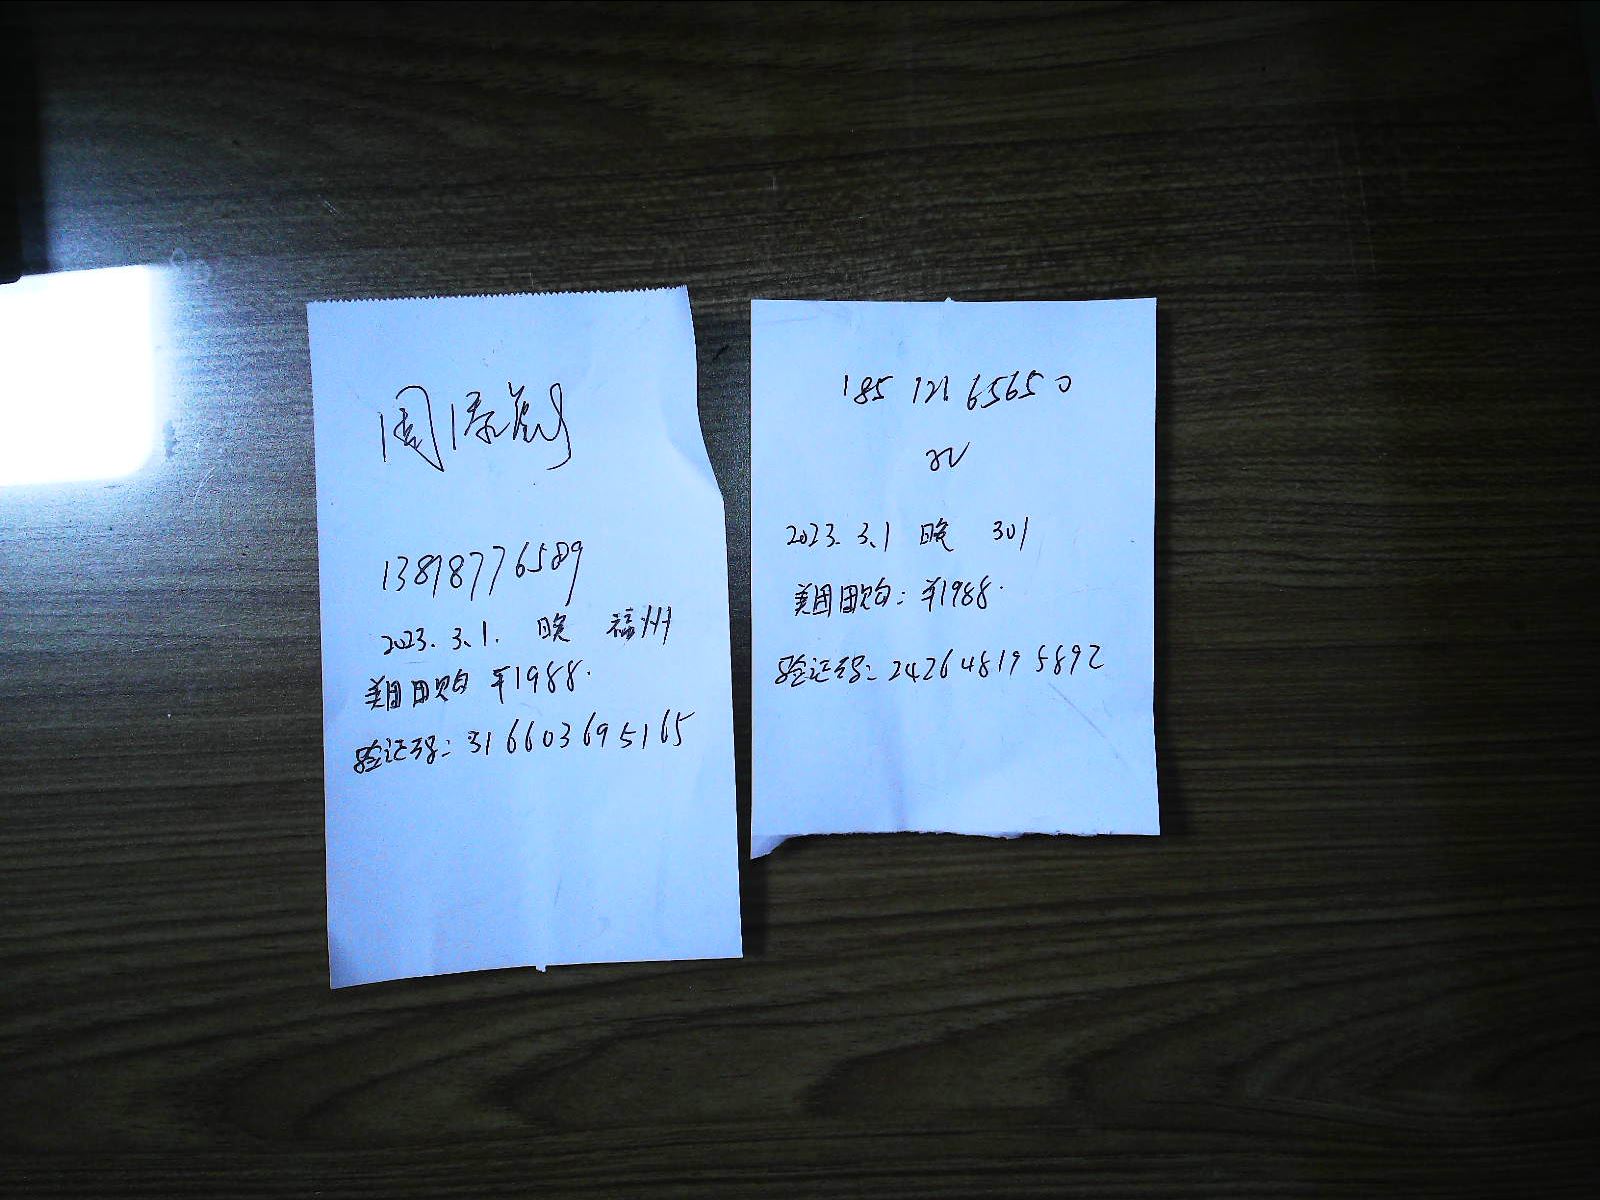 13898776589
2023.3.1. 晚 福州
美团团购 ¥1988.
验证码：316603695165
185 121 65650
2023.3.1 晚 301
美团团购：¥1988.
验证码：242648195892